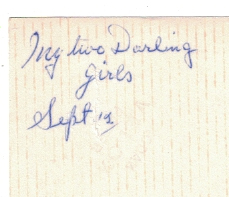 My two Darling
Girls
Sept 12